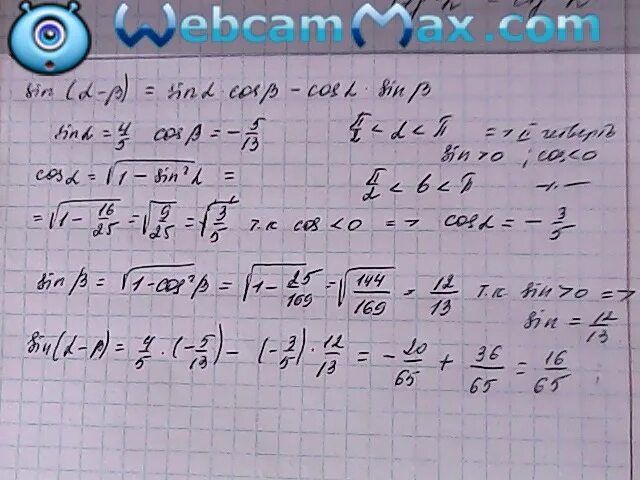 WebcamMax.com
sin(α-β) = sinα cosβ - cosα · sinβ
sinα = 4/5 cosβ = -5/13 π/2 < α < π => II четверть
sin>0 ; cos<0
cosα = √(1 - sin²α) = π/2 < β < π -"-
= √(1 - 16/25) = √(9/25) = √(3/5) т.к cos < 0 => cosα = - 3/5
sin β = √(1-cos²β) = √(1 - 25/169) = √(144/169) = 12/13 т.к sin>0 =>
sin = 12/13
sin(α-β) = 4/5 · (-5/13) - (-3/5) · 12/13 = - 20/65 + 36/65 = 16/65